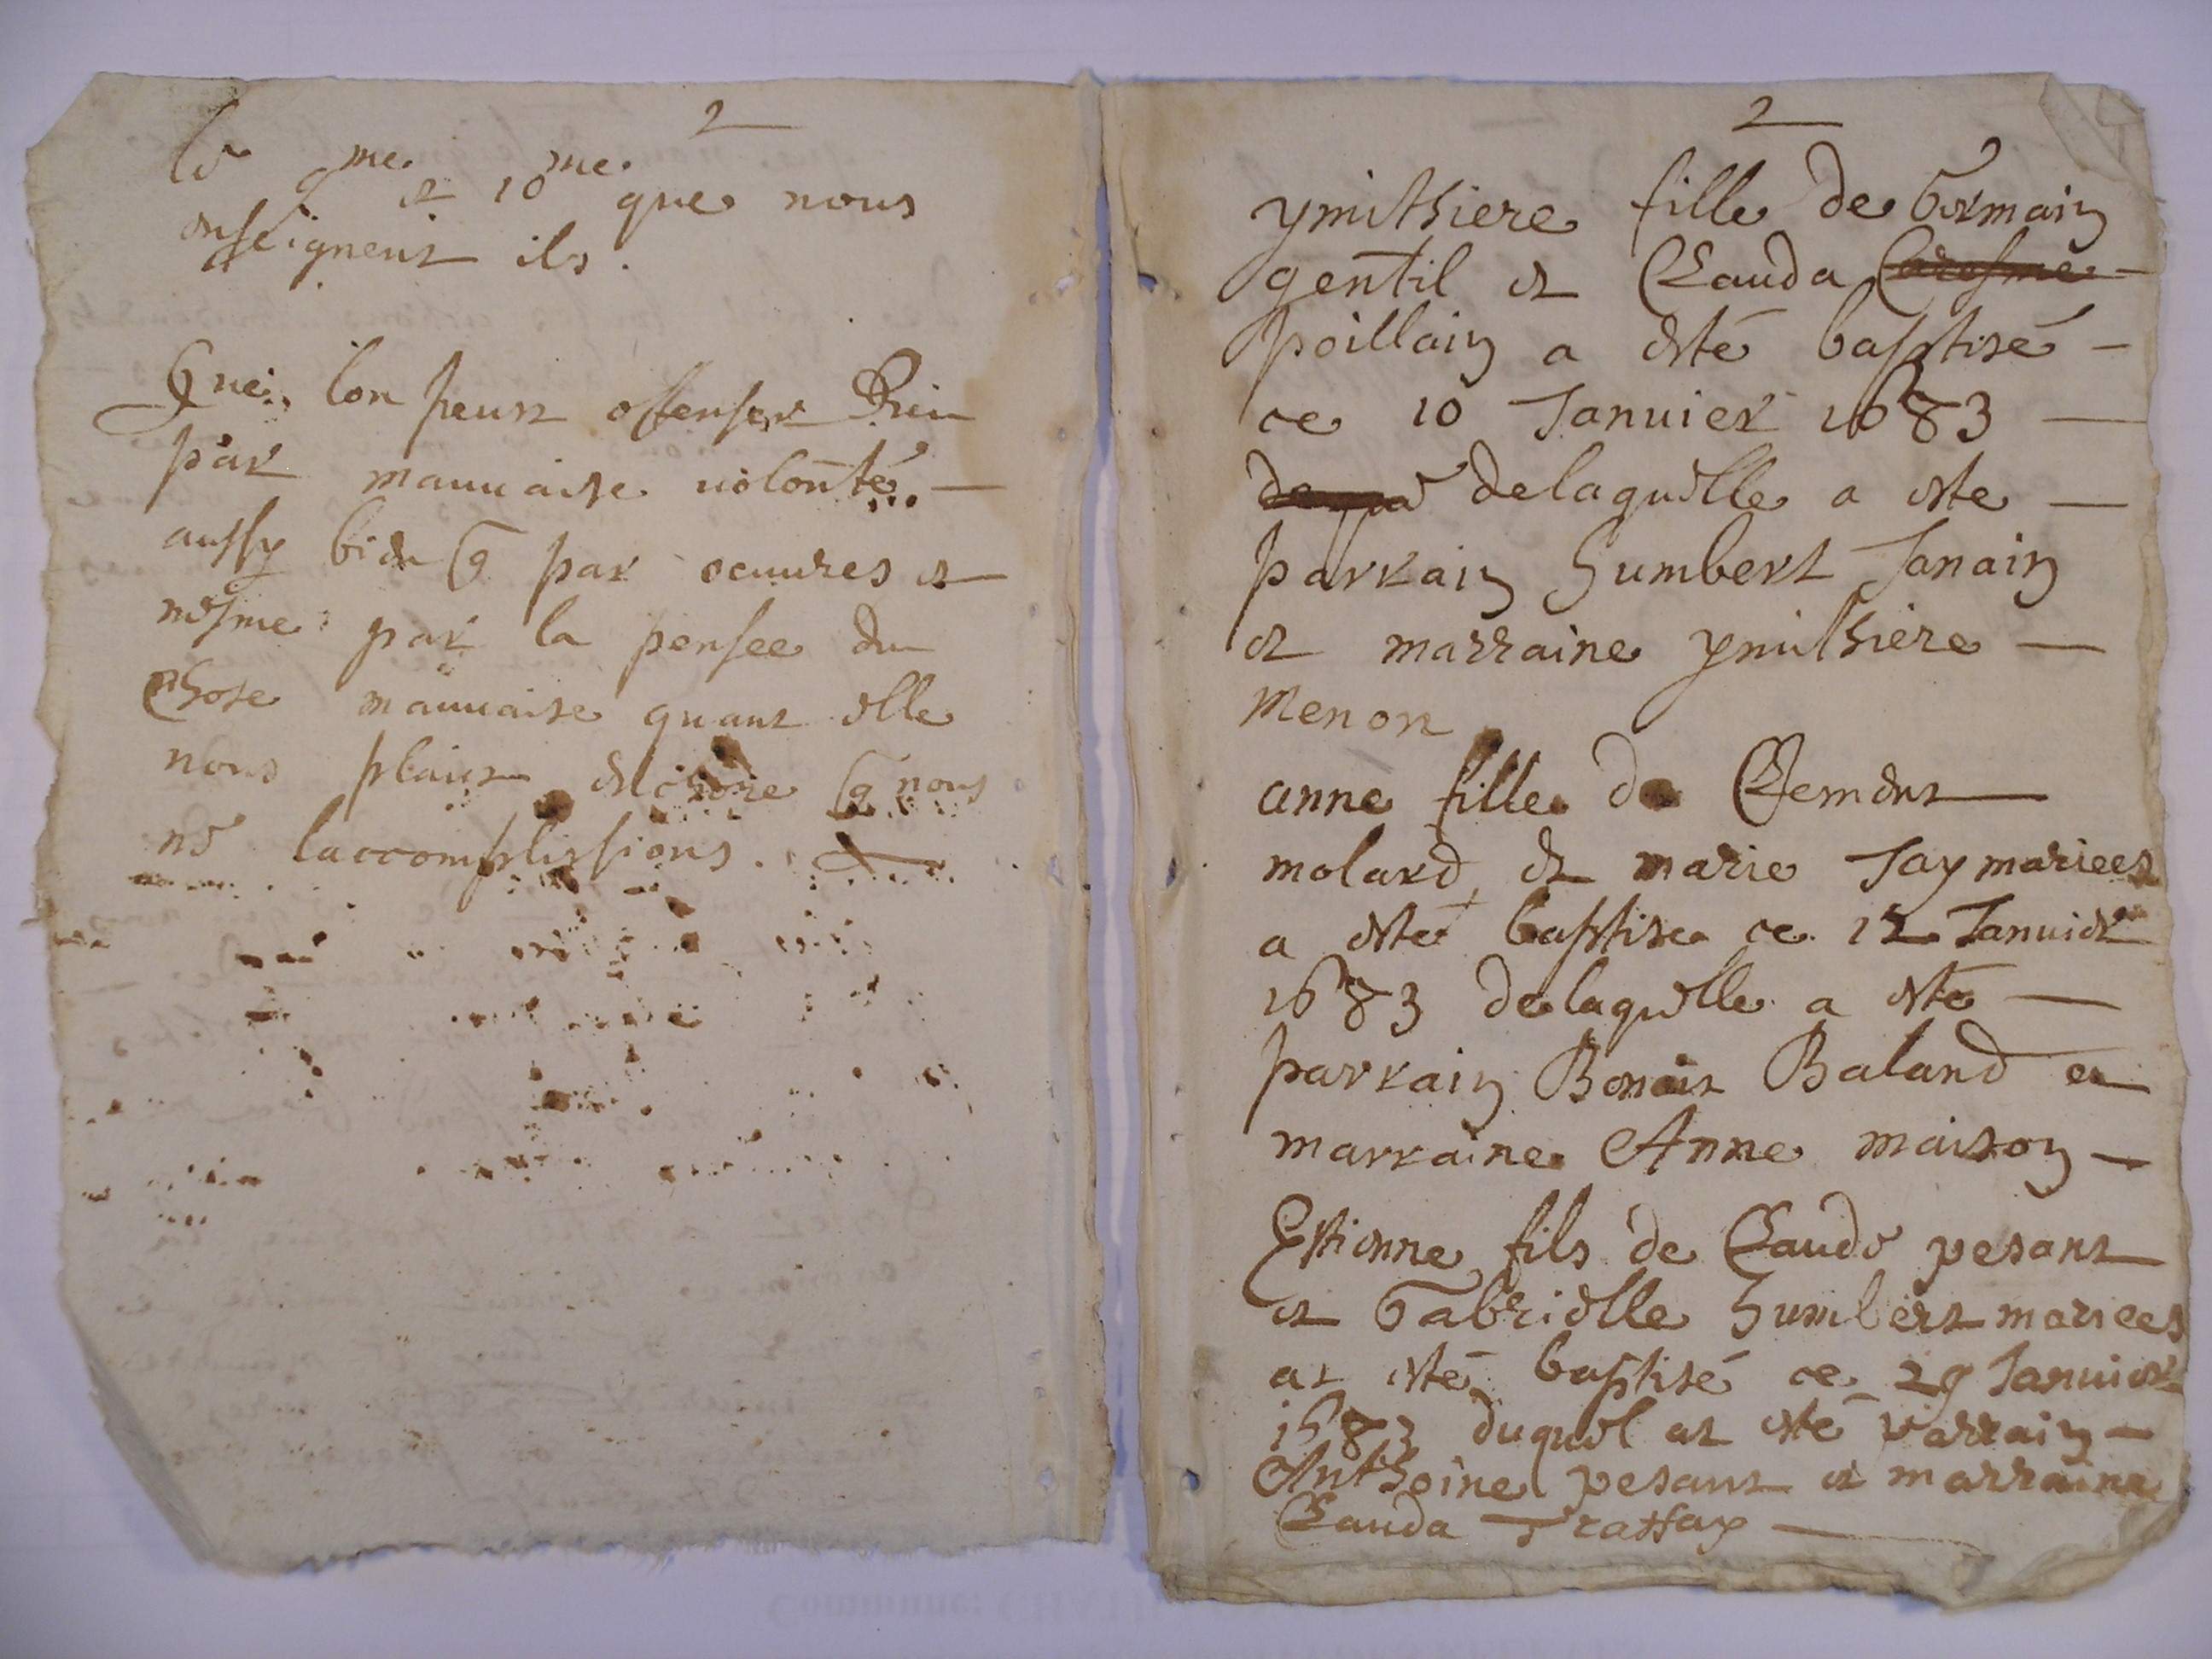 2
le 9me et 10me que nous
enseignent ils.
Que lon peut offenser Dieu
par mauuaise uolonté
aussy bien q par oeuures et
mesme par la pensee du
chose mauuaise quant elle
nous plait encore q nous
ne laccomplissions.
2
ymithiere fille de Germain
gentil et Clauda
poillain a esté baptisé
ce 10 Januier 1683
delaquelle a este
parrain humbert Janain
et marraine ymithiere
Menon
anne fille de Clement
molard et marie Jay mariees
a esté baptise ce 12 Januier
1683 delaquelle a esté
parrain Benoit Baland et
marraine Anne maison
Estienne fils de Claude pesant
et Gabrielle humbert mariees
at esté baptisé ce 29 Januier
1683 duquel at esté parrain
Anthoine pesant et marraine
Clauda